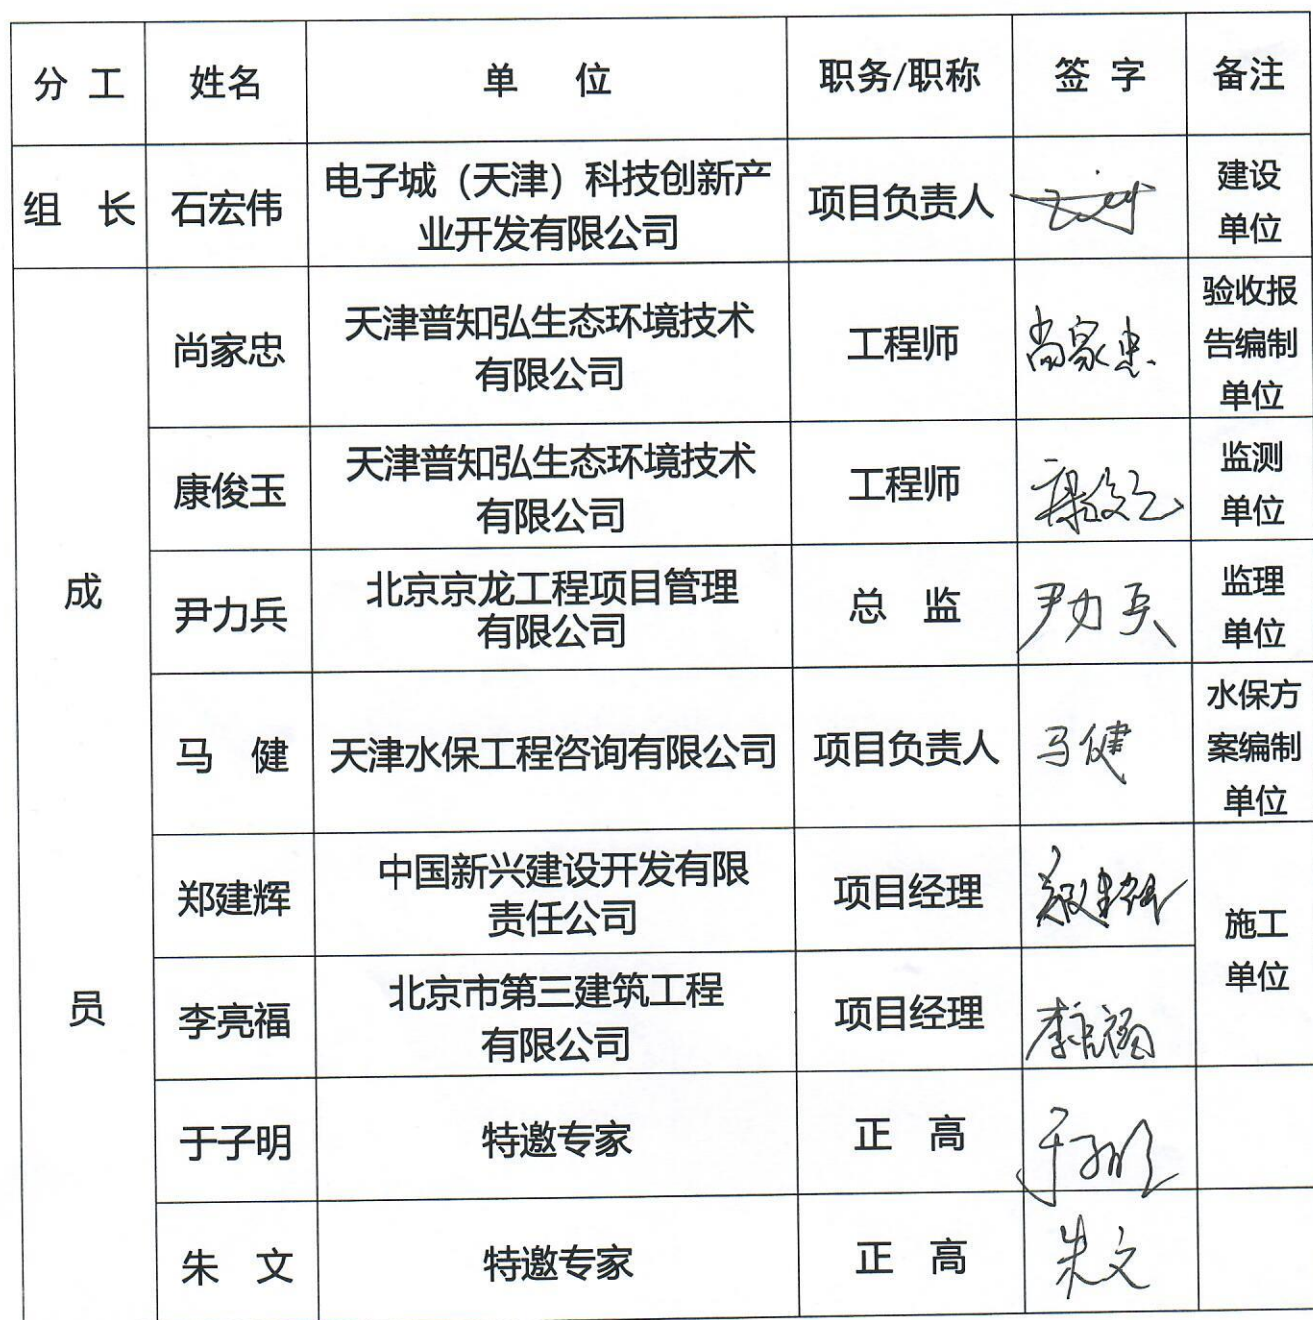 分 工 姓名 单 位 职务/职称 签 字 备注
组 长 石宏伟 电子城（天津）科技创新产
业开发有限公司 项目负责人 建设
单位
成
员
尚家忠 天津普知弘生态环境技术
有限公司 工程师 尚家忠 验收报
告编制
单位
康俊玉 天津普知弘生态环境技术
有限公司 工程师 康俊玉 监测
单位
尹力兵 北京京龙工程项目管理
有限公司 总 监 尹力兵 监理
单位
马 健 天津水保工程咨询有限公司 项目负责人 马健 水保方
案编制
单位
郑建辉 中国新兴建设开发有限
责任公司 项目经理 郑建辉 施工
单位
李亮福 北京市第三建筑工程
有限公司 项目经理 李亮福
于子明 特邀专家 正 高 于子明
朱 文 特邀专家 正 高 朱文